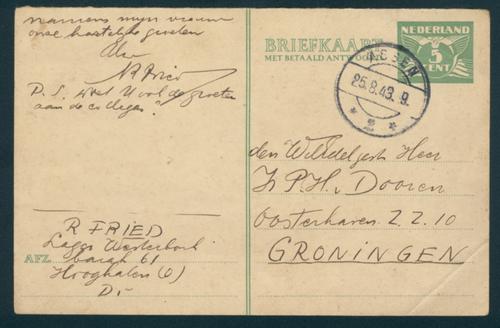 namens mijn vrouw
onze hartelijke groeten
Uw
R Fried
P.S. wilt U ook de groeten
aan de collega's
R FRIED
Lager Westerbork
barak 61
AFZ. Hooghalen (O)
Dr.
NEDERLAND
5
CENT
BRIEFKAART
MET BETAALD ANTWOORD
ASSEN
25.8.43. 9.
* 2 *
den WelEdelgestr Heer
H. P. H. v Dooren
Oosterhaven Z.Z. 10
GRONINGEN